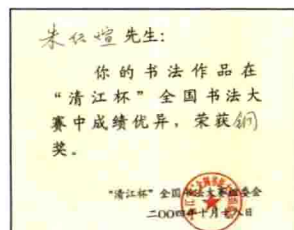 朱仁煊先生：
你的书法作品在
“清江杯”全国书法大
赛中成绩优异，荣获铜
奖。
“清江杯”全国书法大赛组委会
二〇〇四年十月十八日